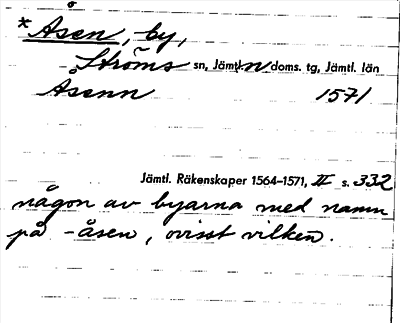 *Åsen, by,
Ströms sn, Jämtl. n doms. tg, Jämtl. län
Åsenn 1571
Jämtl. Räkenskaper 1564–1571, II s. 332
någon av byarna med namn
på -åsen, ovisst vilken.